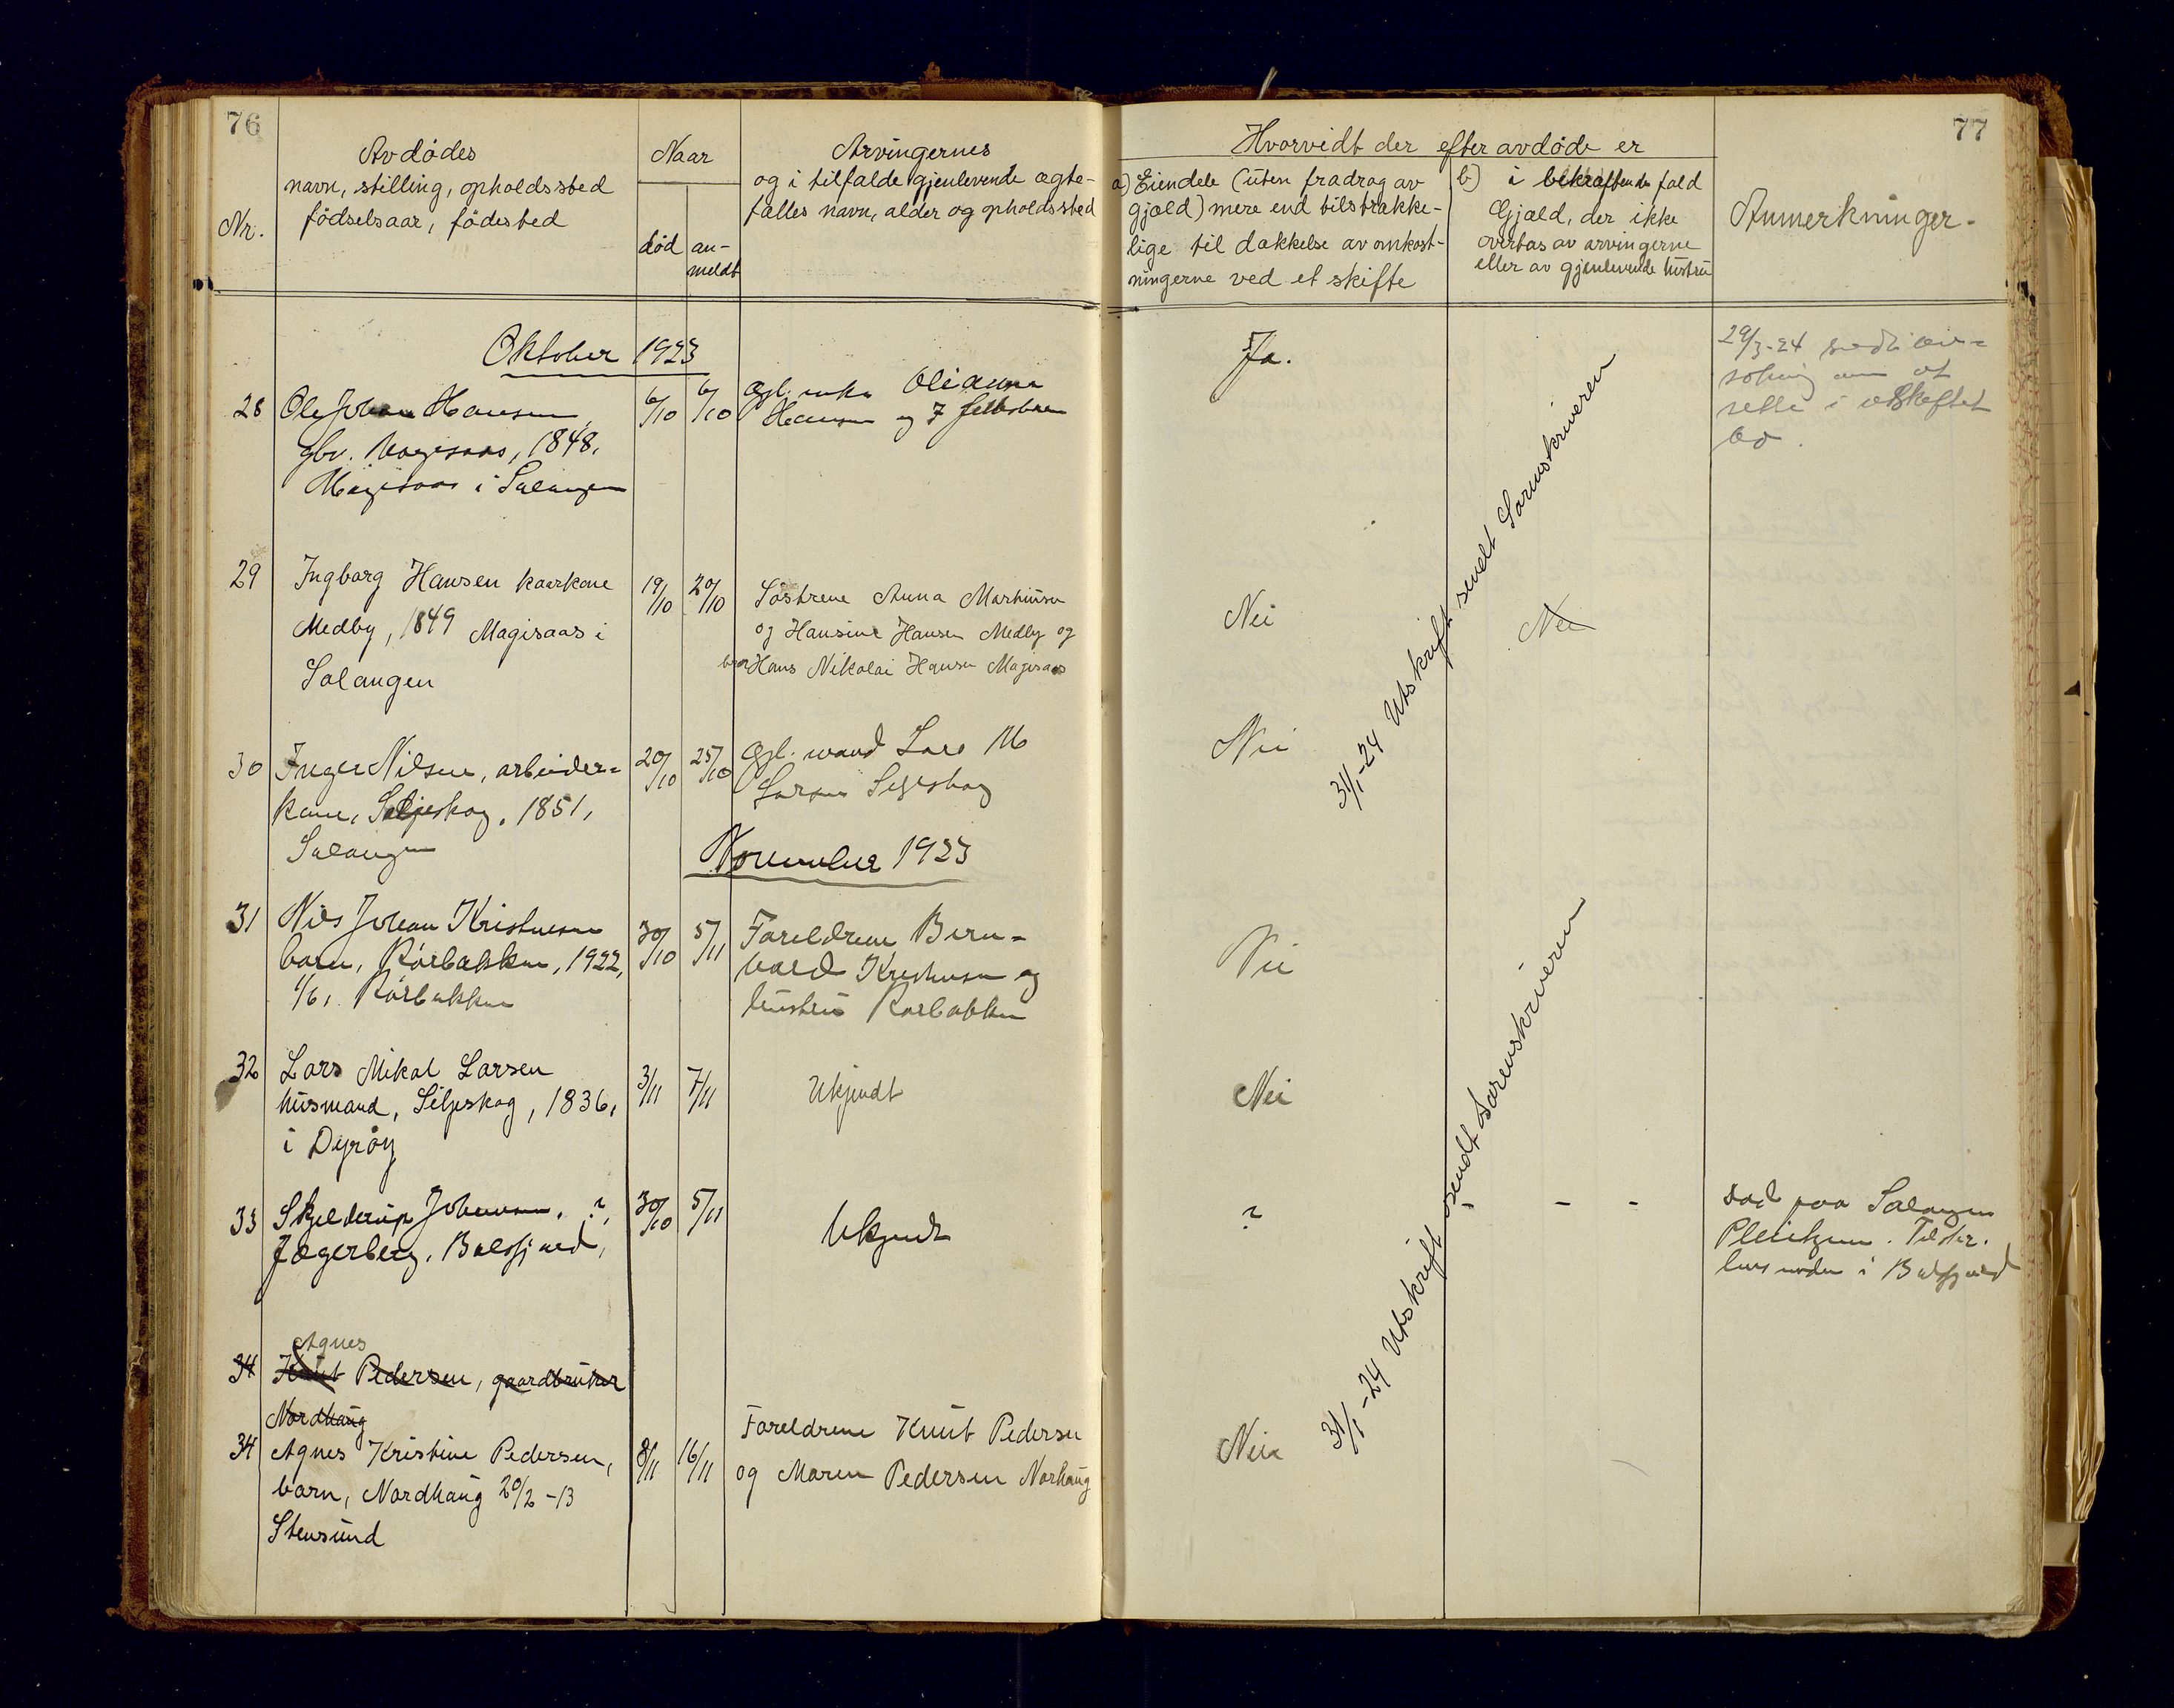 76
77
Nr.
Avdödes
navn, stilling, opholdssted
födselsaar, födested
Naar
död
an-
meldt
Arvingernes
og i tilfælde gjenlevende ægte-
fælles navn, alder og opholdssted
Hvorvidt der efter avdöde er
a) Eiendele (uten fradrag av
gjæld) mere end tilstrække-
lige til dækkelse av omkost-
ningerne ved et skifte
b) i bekræftende fald
Gjæld, der ikke
overtas av arvingerne
eller av gjenlevende hustru
Anmerkninger.
Oktober 1923
28 Ole Johan Hansen
gbr. Magisaas, 1848,
Magisaas i Salangen
6/10 6/10
Gjl. enke Olianna
Hansen og 7 fellesbarn
Ja.
29/3-24
at
i
bo.
29 Ingborg Hansen kaarkone
Medby, 1849 Magisaas i
Salangen
19/10 20/10
Söstrene Anna Martinsen
og Hansine Hansen Medby og
bror Hans Nikolai Hansen Magisaas
Nei
Nei
31/1-24 Utskrift sendt Sorenskriveren
30 Inger Nilsen, arbeider-
kone, Seljeskog, 1851,
Salangen
20/10 25/10
Gjl. mand Lars M
Larsen Seljeskog
Nei
November 1923
31 Nils Johan Kristensen
barn, Rörbakken, 1922,
1/6, Rörbakken
30/10 5/11
Foreldrene Bern-
hard Kristensen og
hustru Rørbakken
Nei
32 Lars Mikal Larsen
husmand, Seljeskog, 1836,
i Dyröy
3/11 7/11
Ukjendt
Nei
33 Skjelderup Johansen, ?,
Jægerberg, Balsfjord,
30/10 5/11
Ukjendt
?
- -
död paa Salangen
Pleiehjem. Tilhør.
i Balsfjord
31/1-24 Utskrift sendt Sorenskriveren
Agnes
34 Knut Pedersen, gaardbruker
Nordhaug
34 Agnes Kristine Pedersen,
barn, Nordhaug 20/2-13
Stensund
8/11 16/11
Foreldrene Knut Pedersen
og Maren Pedersen Norhaug
Nei